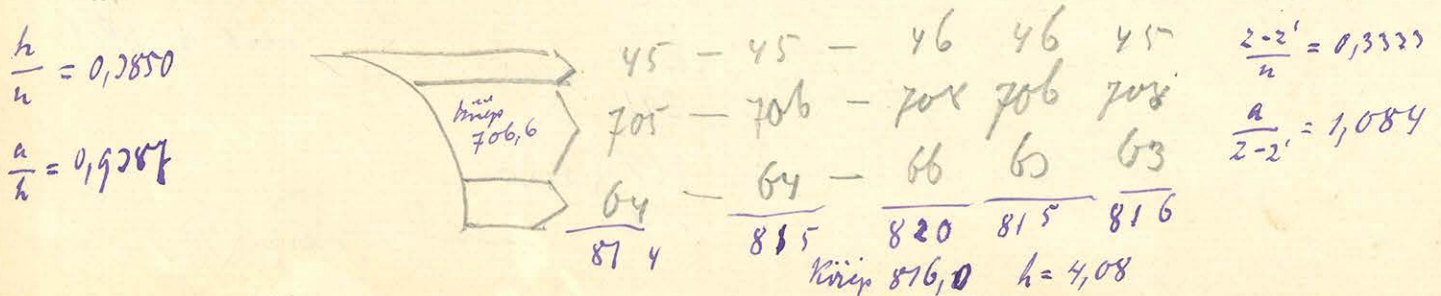 h/n = 0,3850
a/h = 0,9387
45 – 45 – 46 46 45
közép 706,6
705 – 706 – 708 706 708
64 – 64 – 66 63 63
814 815 820 815 816
Közép 816,0 h = 4,08
z-z'/n = 0,3333
a/z-z' = 1,084